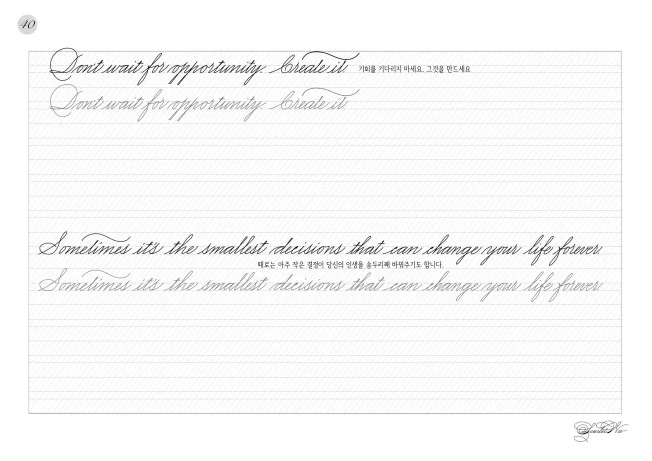 40
Don't wait for opportunity. Create it 기회를 기다리지 마세요. 그것을 만드세요
Don't wait for opportunity. Create it
Sometimes it's the smallest decisions that can change your life forever.
때로는 아주 작은 결정이 당신의 인생을 송두리째 바꿔주기도 합니다.
Sometimes it's the smallest decisions that can change your life forever.